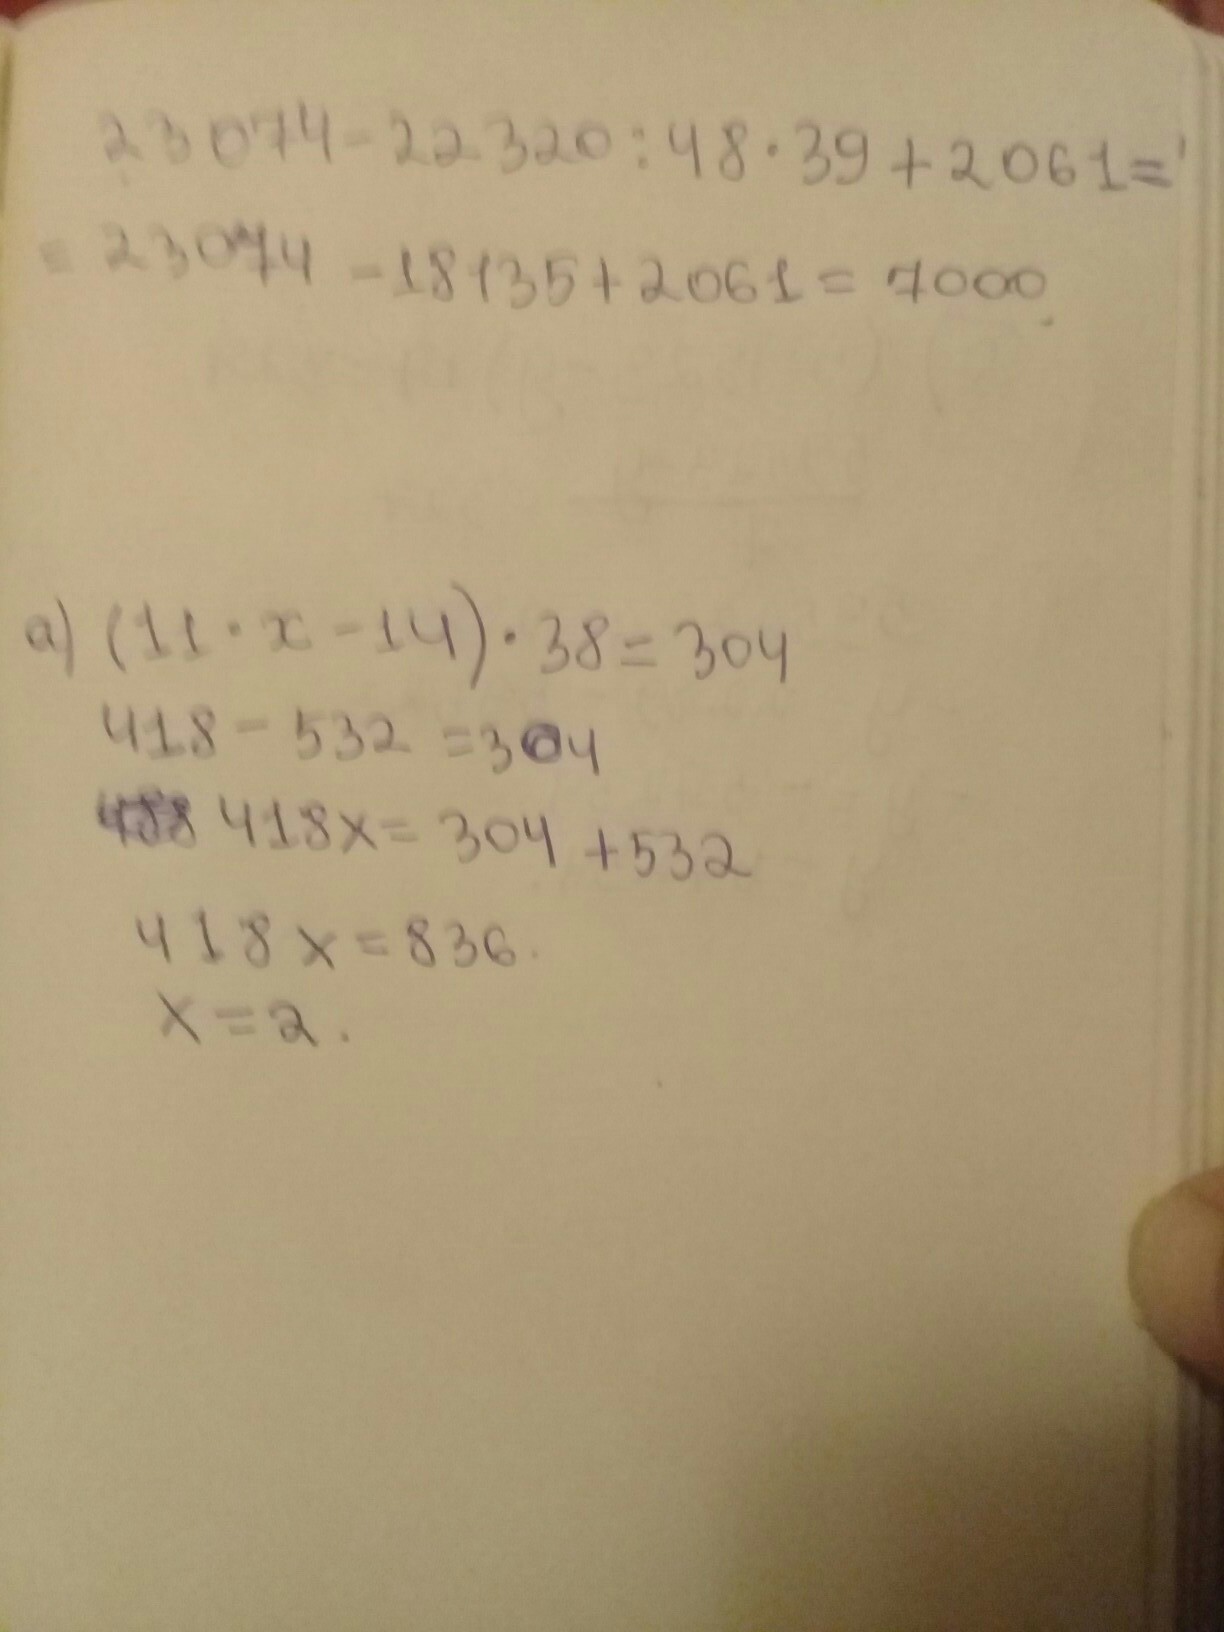 23074-22320:48·39+2061=
= 23074 -18135+2061= 7000
a) (11·x-14)·38=304
418-532=304
418x=304+532
418x=836.
x=2.